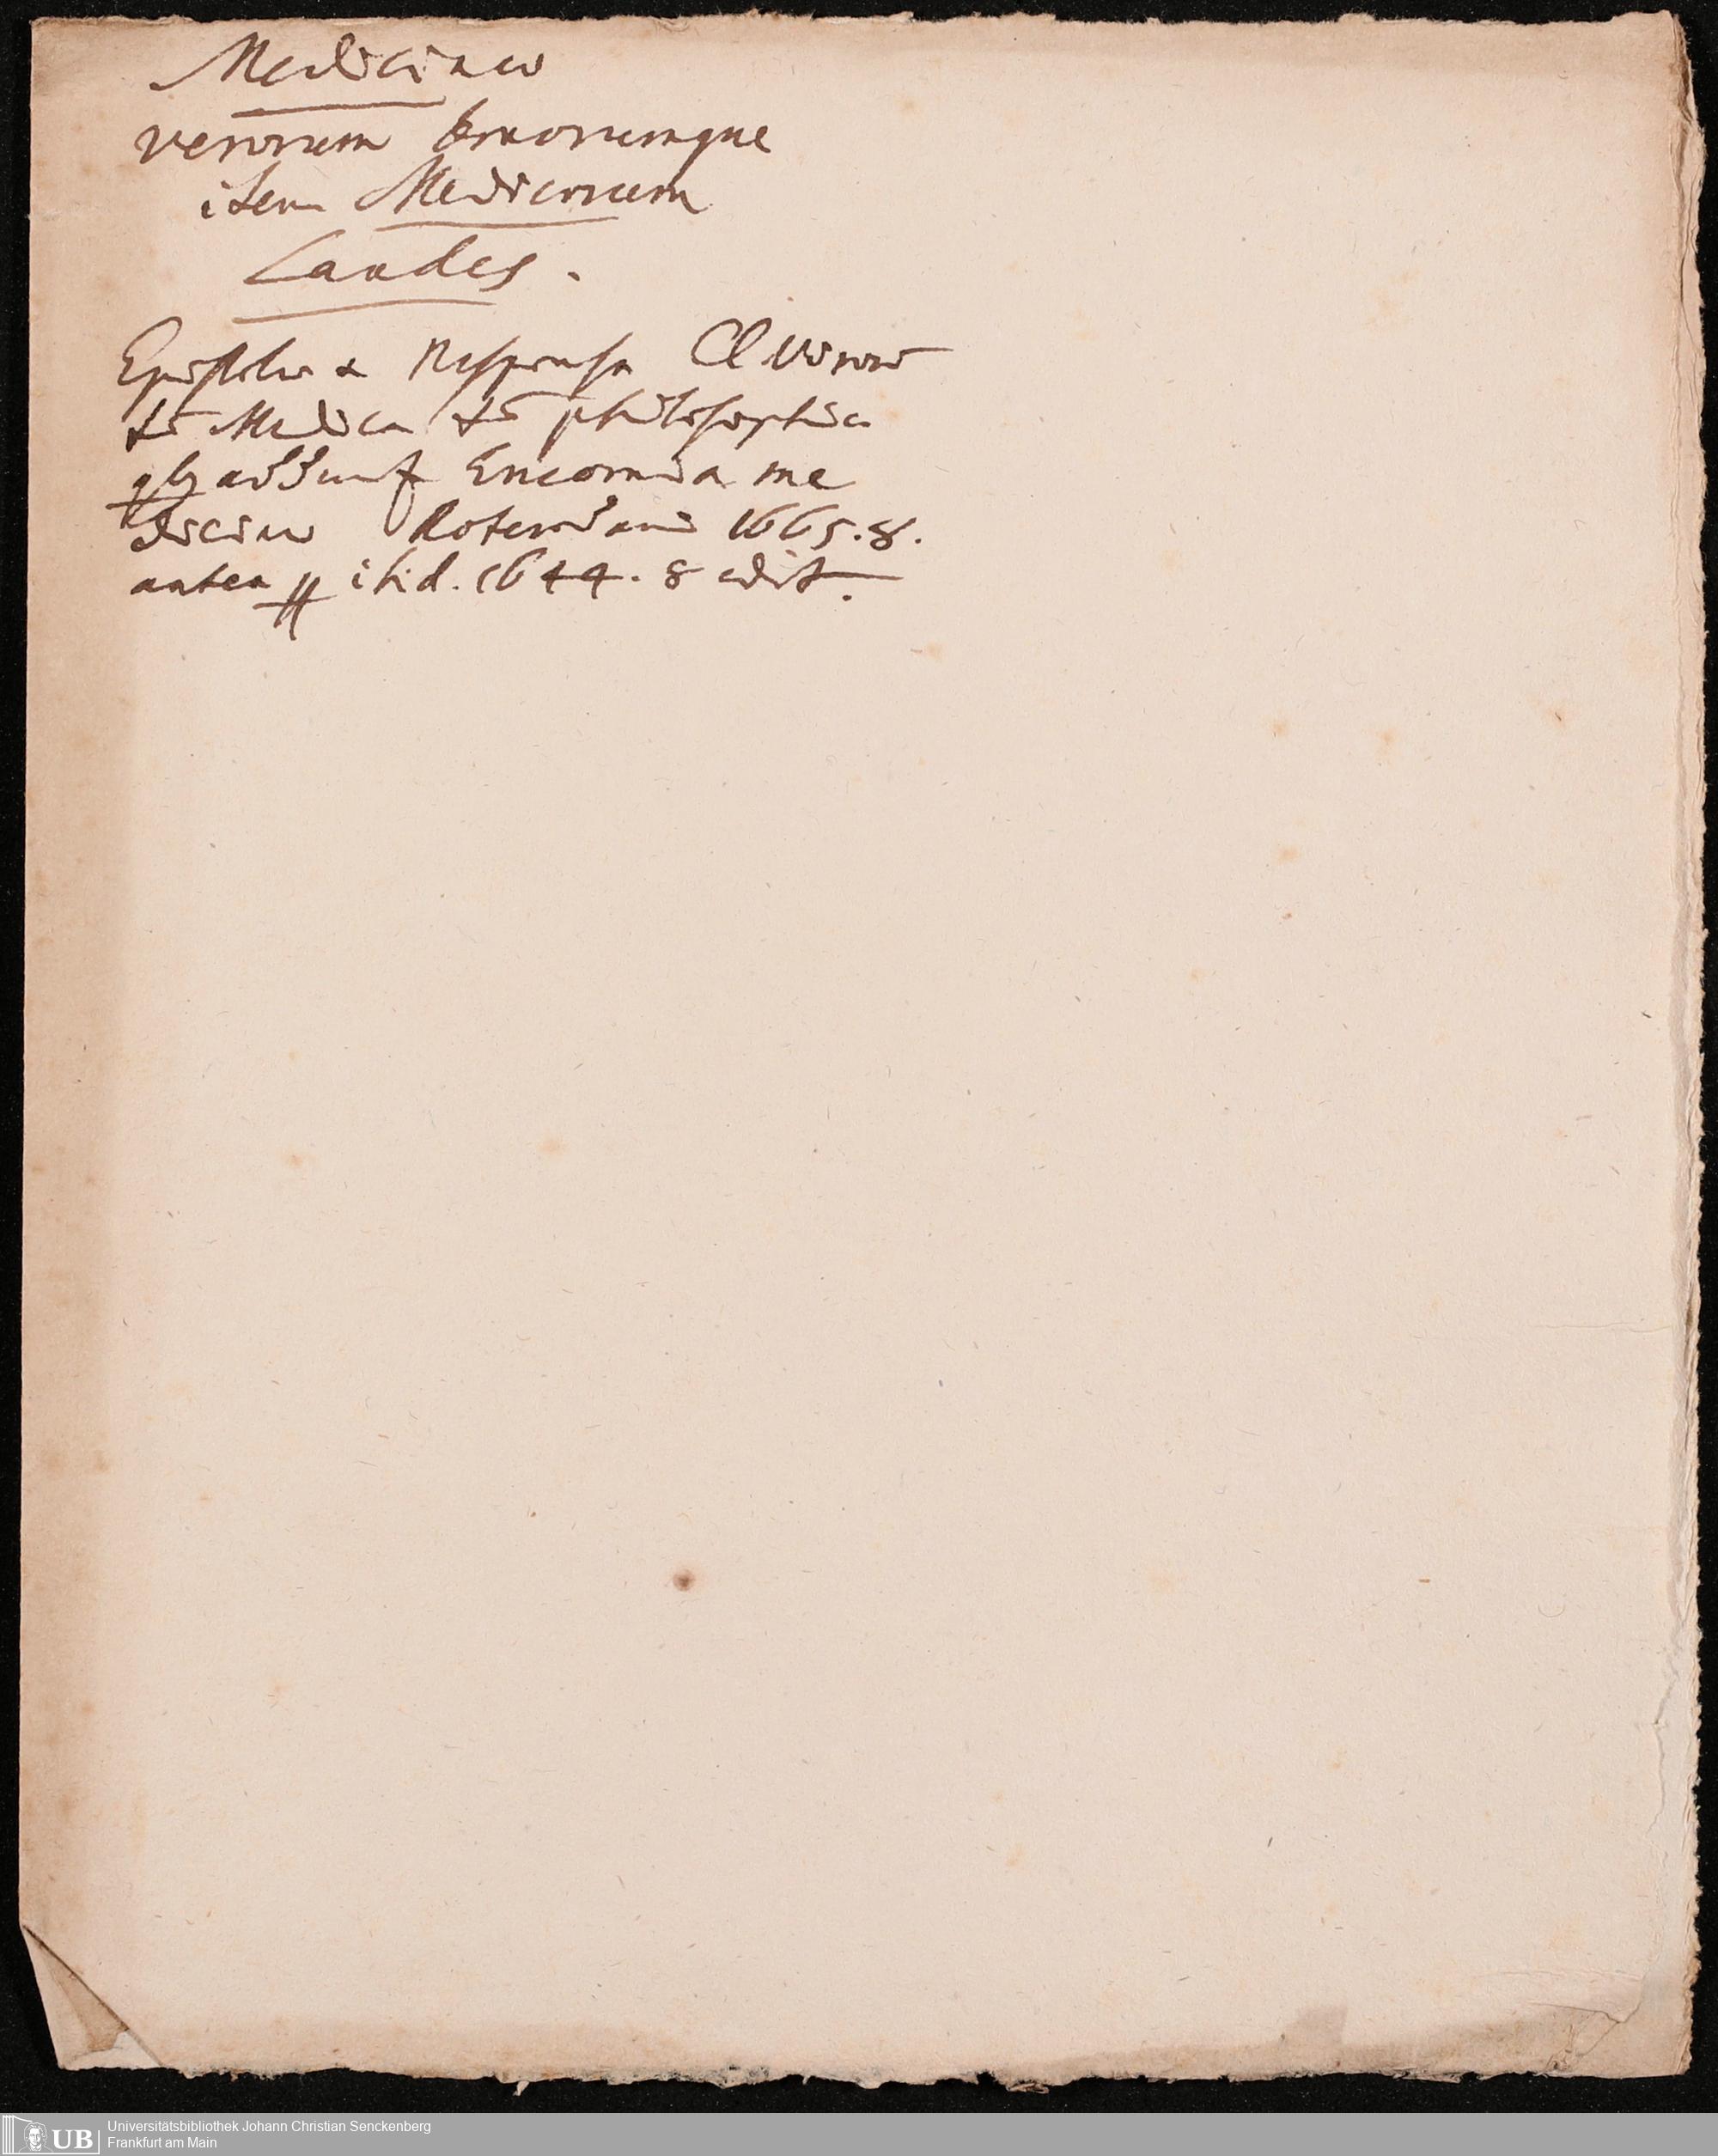 Medicinae
verorum bonorumque
item Medicorum
Laudes.
Epistolae & Responsa Cl Viror
tū Medica tū philosophica
qb adduntr Encomia me
dicinae Roterodami 1665. 8.
antea ibid. 1644. 8 edit.
Universitätsbibliothek Johann Christian Senckenberg
Frankfurt am Main
UB